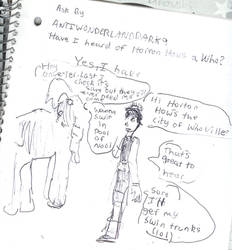 Ask By
ANTIWONDERLANDDARK9
Have I heard of Horton Hears a Who?
Yes, I have
Hey
check it's
sure but they
need me
wanna
swim
in
Pool
of
Nool?
Hi Horton
How's the
City of Whoville?
That's
great to
hear
Sure
I'll
get my
swim trunks
(lol)